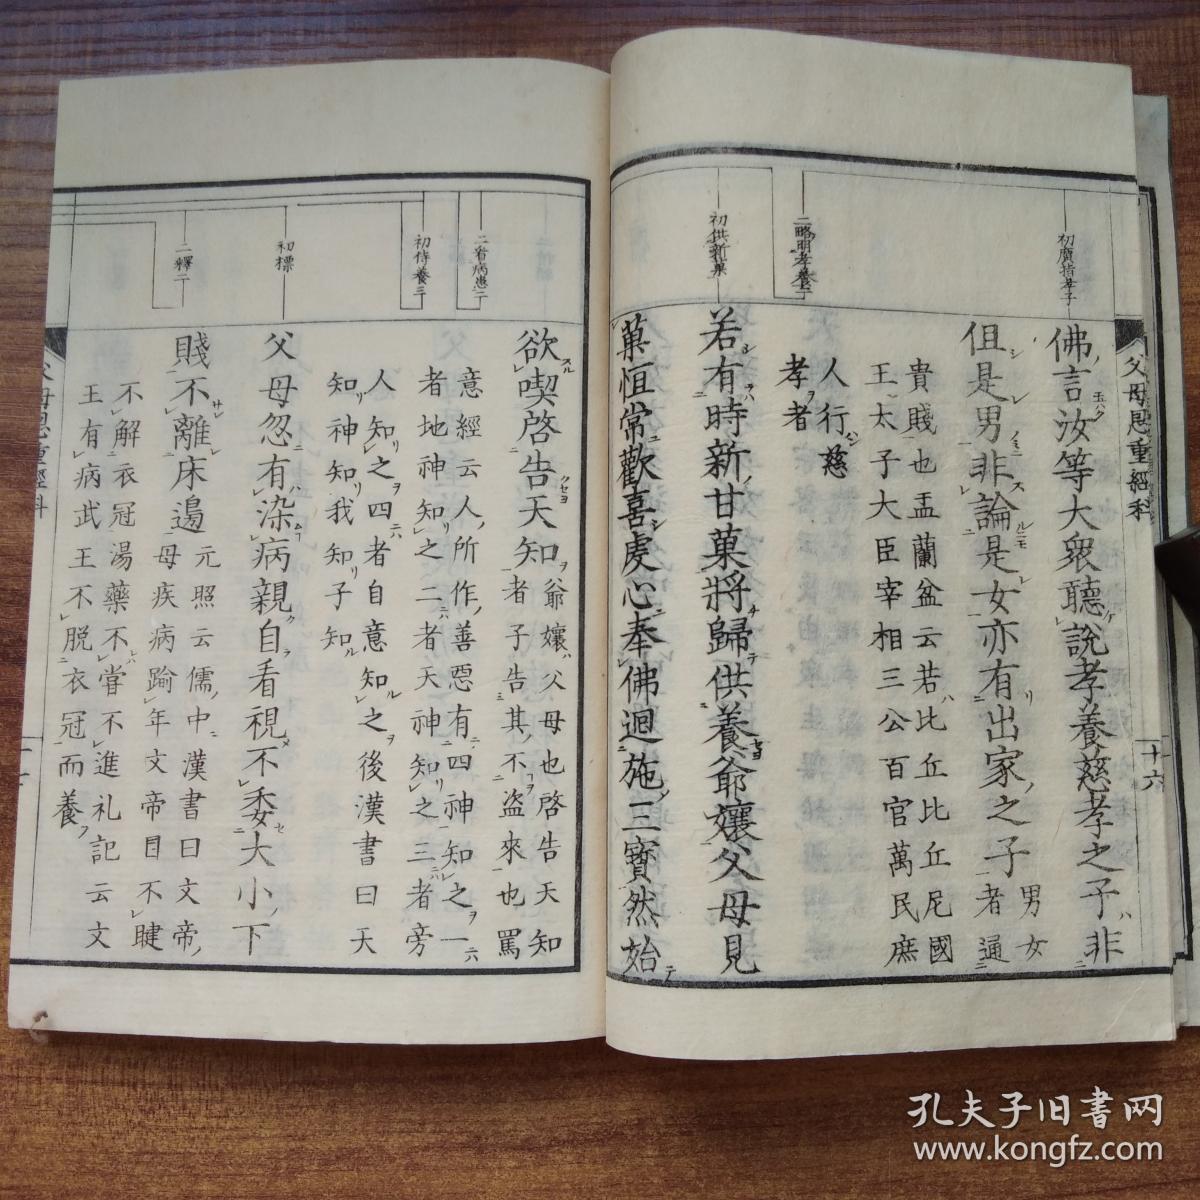 初廣指孝子
佛言汝等大衆聽說孝養慈孝之子非
但是男非論是女亦有出家之子者通
男女
貴賤也盂蘭盆云若比丘比丘尼國
王太子大臣宰相三公百官萬民庶
人行慈
孝者
二略明孝養二
初供新菓
若有時新甘菓將歸供養爺孃父母見
菓恒常歡喜虔心奉佛迴施三寶然始
父母恩重經科
十六
二看病患二
初侍養三
欲喫啓告天知
爺孃父母也啓告天知
者子告其不盜來也罵
意經云人所作善惡有四神知之一
者地神知之二者天神知之三者旁
人知之四者自意知之後漢書曰天
知神知我知子知
初標
父母忽有染病親自看視不委大小下
二釋二
賤不離床邊
元照云儒中漢書曰文帝
母疾病踰年文帝目不睫
不解衣冠湯藥不嘗不進礼記云文
王有病武王不脱衣冠而養
父母恩重經科
孔夫子旧书网
www.kongfz.com